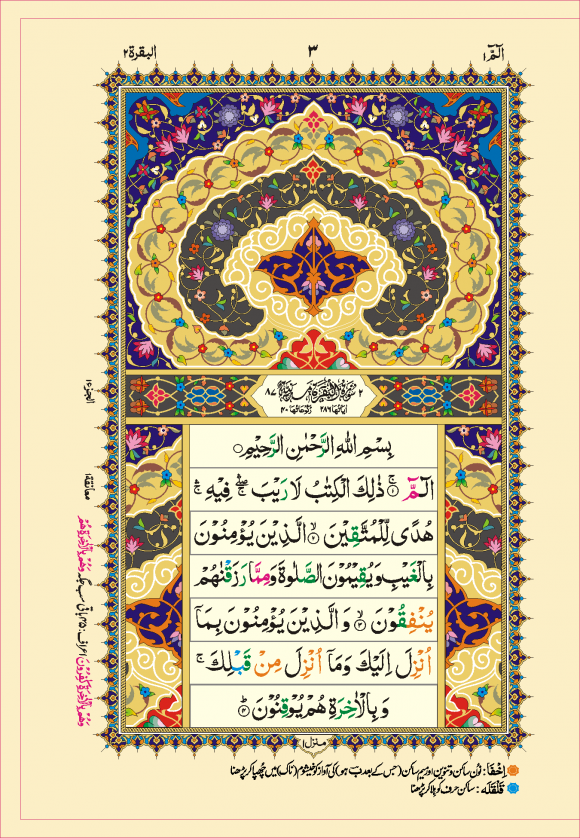 الٓمّٓ ١
٣
البقرة ٢
٢ سُوْرَةُ الْبَقَرَةِ مَدَنِيَّةٌ ٨٧
اٰیاتها ٢٨٦ رکوعاتها ٤٠
بِسْمِ اللّٰهِ الرَّحْمٰنِ الرَّحِیْمِ
الٓمّٓ ۚ﴿۱﴾ ذٰلِكَ الْكِتٰبُ لَا رَیْبَ ۛۖ فِیْهِ ۛۚ
هُدًی لِّلْمُتَّقِیْنَ ۙ﴿۲﴾ الَّذِیْنَ یُؤْمِنُوْنَ
بِالْغَیْبِ وَیُقِیْمُوْنَ الصَّلٰوةَ وَمِمَّا رَزَقْنٰهُمْ
یُنْفِقُوْنَ ۙ﴿۳﴾ وَالَّذِیْنَ یُؤْمِنُوْنَ بِمَاۤ
اُنْزِلَ اِلَیْكَ وَمَاۤ اُنْزِلَ مِنْ قَبْلِكَ ۚ
وَبِالْاٰخِرَةِ هُمْ یُوْقِنُوْنَ ؕ﴿۴﴾
منزل ١
الجزء ١
معانقة ١
اِخْفَا: نون ساکن و تنوین اور میم ساکن (جس کے بعد ب ہو) کی آواز کو خیشوم (ناک) میں چھپا کر پڑھنا
قَلْقَلَه: ساکن حرف کو ہلا کر پڑھنا